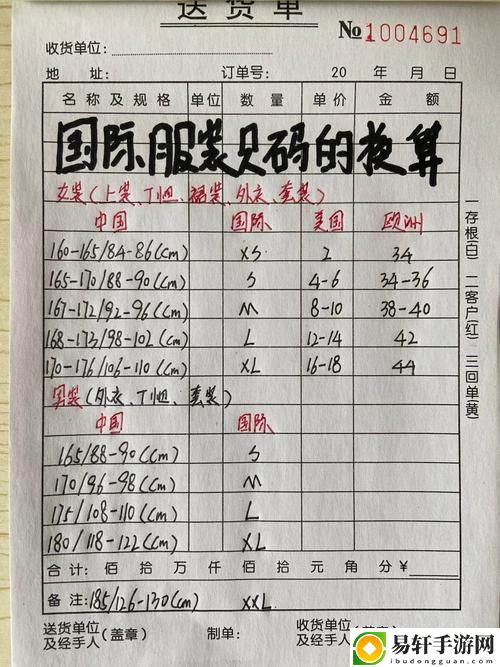 送货单
№1004691
收货单位:
地 址: 订单号: 20 年 月 日
名称及规格 单位 数量 单价 金额
国际服装尺码的换算
女装(上装、T恤、裙装、外衣、套装)
中国 国际 美国 欧洲
160-165/84-86(cm) XS 2 34
165-170/88-90(cm) S 4-6 34-36
167-172/92-96(cm) M 8-10 38-40
168-173/98-102(cm) L 12-14 42
170-176/106-110(cm) XL 16-18 44
男装(外衣、T恤、套装)
中国 国际
165/88-90(cm) S
170/96-98(cm) M
175/108-110(cm) L
180/118-122(cm) XL
合计: 佰 拾 万 仟 佰 拾 元 角 分 ¥
备注: 185/126-130(cm) XXL
送货单位及经手人(盖章) 制单: 收货单位及经手人(盖章)
一存根(白) 二客户(红) 三回单(黄)
易轩手游网
ibudongguan.com